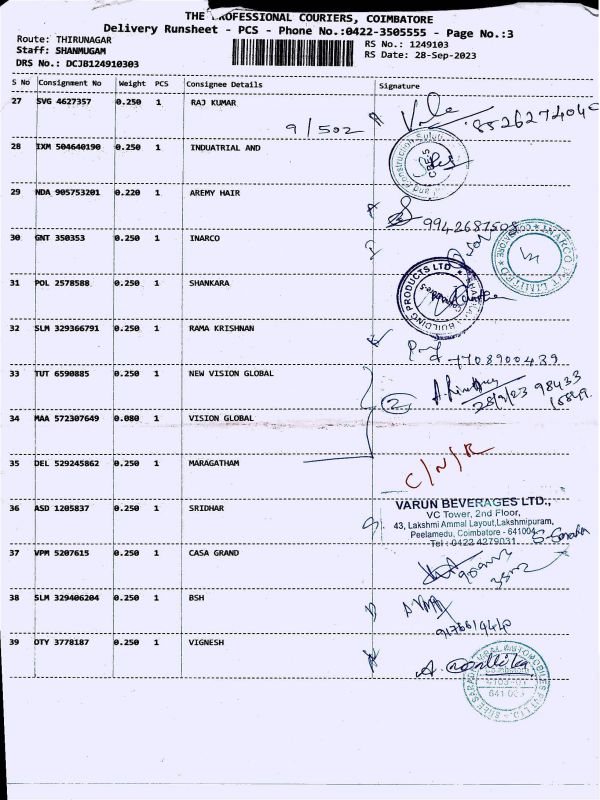 THE PROFESSIONAL COURIERS, COIMBATORE
Delivery Runsheet - PCS - Phone No.:0422-3505555 - Page No.:3
Route: THIRUNAGAR
RS No.: 1249103
Staff: SHANMUGAM
RS Date: 28-Sep-2023
DRS No.: DCJB124910303
S No Consignment No Weight PCS Consignee Details Signature
27 SVG 4627357 0.250 1 RAJ KUMAR
9/502
8526274040
28 IXM 504640190 0.250 1 INDUATRIAL AND
29 NDA 905753201 0.220 1 AREMY HAIR
9942687508
30 GNT 350353 0.250 1 INARCO
INARCO PVT LIMITED
COIMBATORE
31 POL 2578588 0.250 1 SHANKARA
BUILDING PRODUCTS LTD
32 SLM 329366791 0.250 1 RAMA KRISHNAN
7708900439
33 TUT 6590885 0.250 1 NEW VISION GLOBAL
2
28/9/23 98433
34 MAA 572307649 0.080 1 VISION GLOBAL
35 DEL 529245862 0.250 1 MARAGATHAM
C/N/R
36 ASD 1205837 0.250 1 SRIDHAR
VARUN BEVERAGES LTD.,
VC Tower, 2nd Floor,
43, Lakshmi Ammal Layout,Lakshmipuram,
Peelamedu, Coimbatore - 641004
Tel : 0422 4279031
37 VPM 5207615 0.250 1 CASA GRAND
38 SLM 329406204 0.250 1 BSH
39 OTY 3778187 0.250 1 VIGNESH